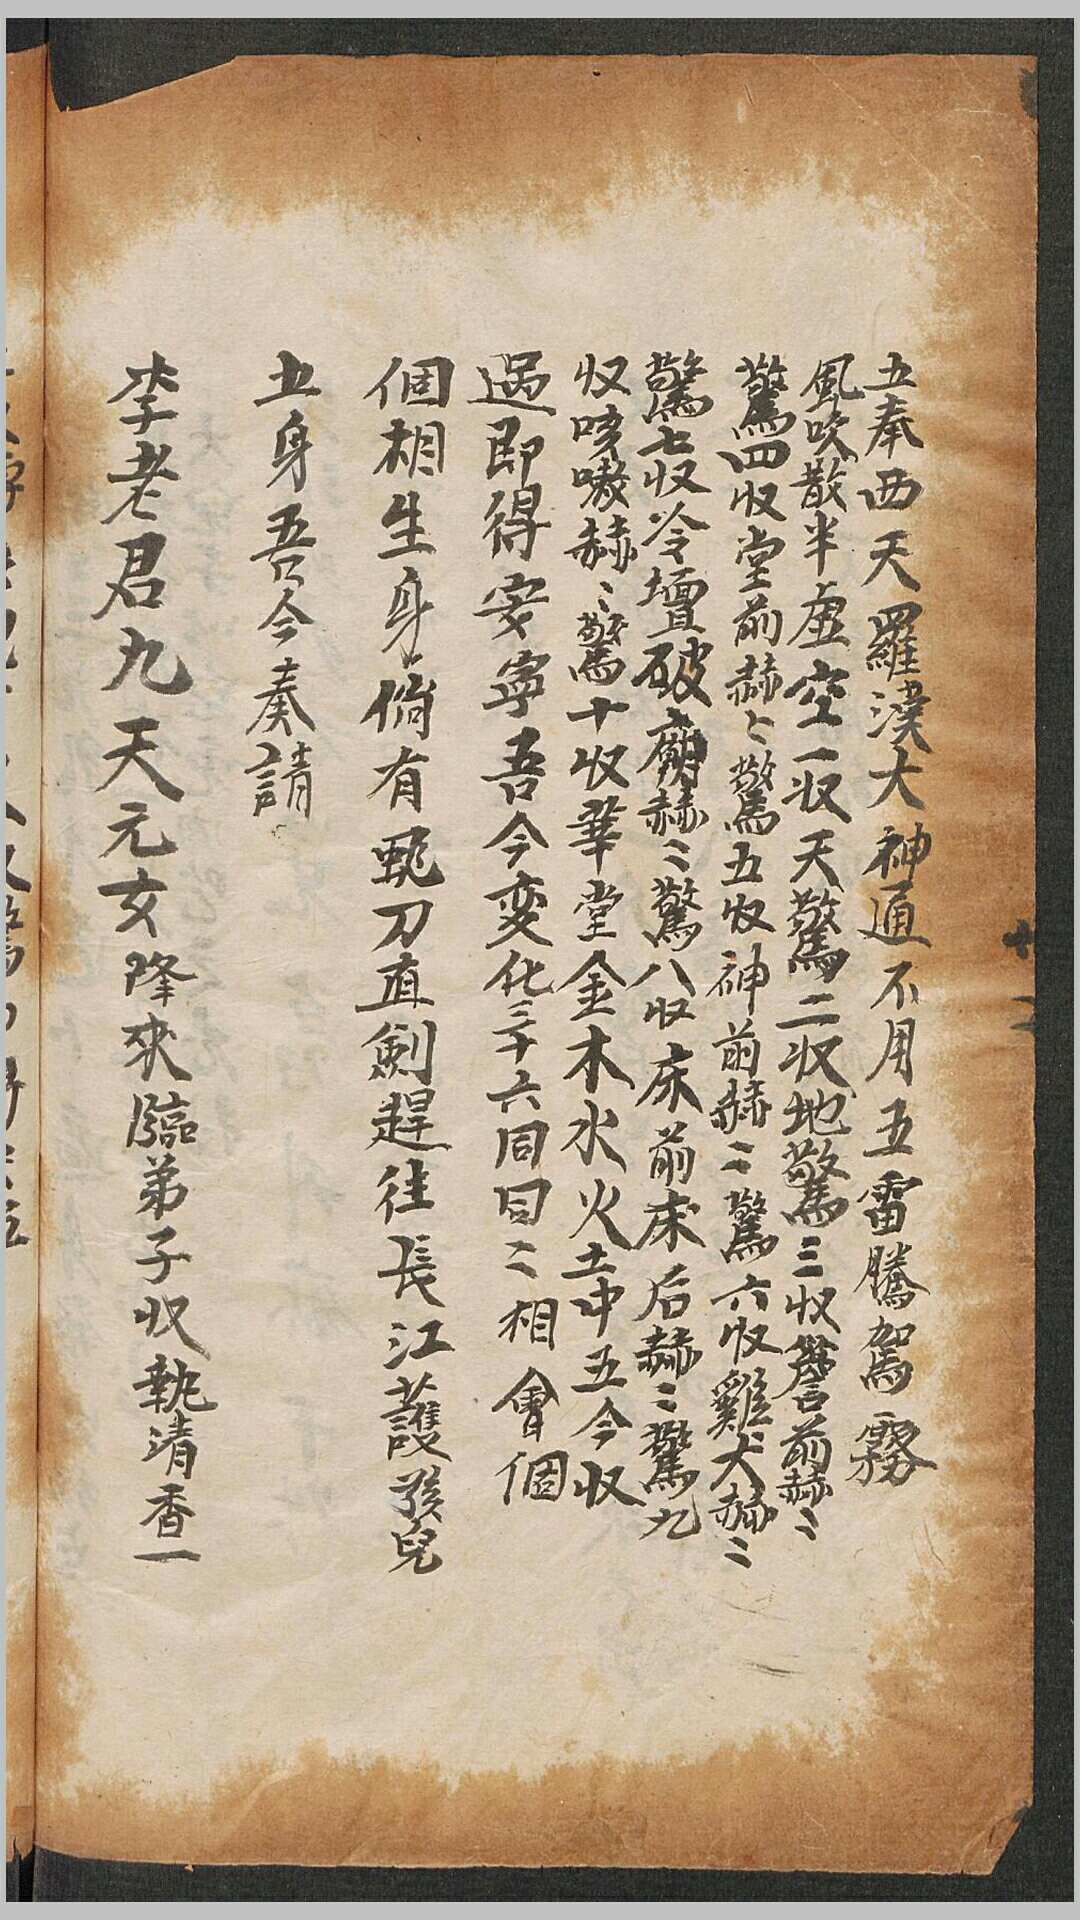 五奉西天羅漢大神通不用五雷騰駕霧
風吹散半虛空一収天驚二収地驚三収簷前赫〻
驚四収堂前赫〻驚五収神前赫〻驚六収雞犬赫〻
驚七収冷壇破廟赫〻驚八収床前床后赫〻驚九
収咳嗽赫〻驚十収華堂金木水火土中五今収
過即得安寧吾今变化三十六同同〻相會個
個相生身偹有
刀直劍趕往長江護孩兒
五身吾今奏請
李老君九天元女降來臨弟子収執清香一